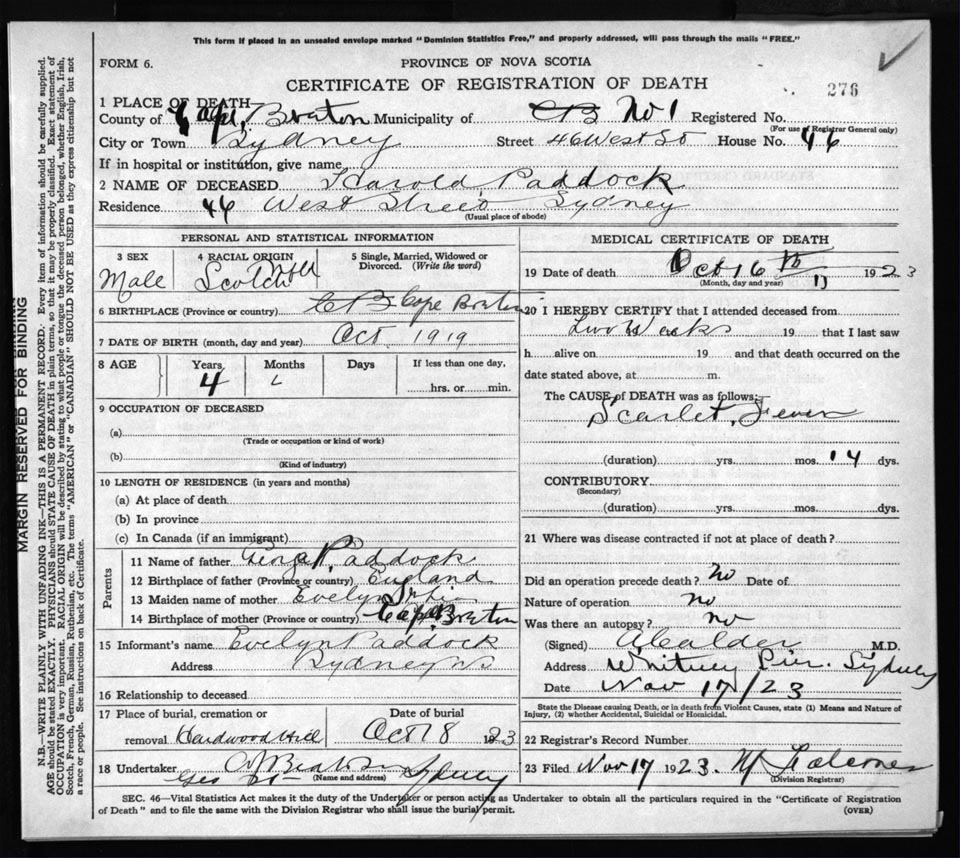 This form if placed in an unsealed envelope marked "Dominion Statistics Free," and properly addressed, will pass through the mails "FREE."
FORM 6. PROVINCE OF NOVA SCOTIA
CERTIFICATE OF REGISTRATION OF DEATH 276
1 PLACE OF DEATH
County of Cape Breton Municipality of CB No 1 Registered No.
(For use of Registrar General only)
City or Town Sydney Street 46 West St House No. 46
If in hospital or institution, give name
2 NAME OF DECEASED Harold Paddock
Residence 46 West Street Sydney
(Usual place of abode)
PERSONAL AND STATISTICAL INFORMATION
3 SEX 4 RACIAL ORIGIN 5 Single, Married, Widowed or Divorced. (Write the word)
Male Scotch
6 BIRTHPLACE (Province or country) CB Cape Breton
7 DATE OF BIRTH (month, day and year) Oct. 1919
8 AGE Years Months Days If less than one day,
4 hrs. or min.
9 OCCUPATION OF DECEASED
(a)
(Trade or occupation or kind of work)
(b)
(Kind of industry)
10 LENGTH OF RESIDENCE (in years and months)
(a) At place of death
(b) In province
(c) In Canada (if an immigrant)
Parents
11 Name of father George Paddock
12 Birthplace of father (Province or country) England
13 Maiden name of mother Evelyn
14 Birthplace of mother (Province or country) Cape Breton
15 Informant's name Evelyn Paddock
Address Sydney NS
16 Relationship to deceased
17 Place of burial, cremation or Date of burial
removal Hardwood Hill Oct 18 1923
18 Undertaker Sydney
(Name and address)
MEDICAL CERTIFICATE OF DEATH
19 Date of death Oct 16 th 1923
(Month, day and year)
20 I HEREBY CERTIFY that I attended deceased from
Two Weeks 19 that I last saw
h alive on 19 and that death occurred on the
date stated above, at m.
The CAUSE of DEATH was as follows:
Scarlet Fever
(duration) yrs. mos. 14 dys.
CONTRIBUTORY
(Secondary)
(duration) yrs. mos. dys.
21 Where was disease contracted if not at place of death?
Did an operation precede death? No Date of
Nature of operation no
Was there an autopsy? no
(Signed) A Calder M.D.
Address Whitney Pier. Sydney
Date Nov 17/23
State the Disease causing Death, or in death from Violent Causes, state (1) Means and Nature of
Injury, (2) whether Accidental, Suicidal or Homicidal.
22 Registrar's Record Number
23 Filed Nov 17 1923.
(Division Registrar)
SEC. 46—Vital Statistics Act makes it the duty of the Undertaker or person acting as Undertaker to obtain all the particulars required in the "Certificate of Registration
of Death" and to file the same with the Division Registrar who shall issue the burial permit. (OVER)
MARGIN RESERVED FOR BINDING
N.B.—WRITE PLAINLY WITH UNFADING INK—THIS IS A PERMANENT RECORD. Every item of information should be carefully supplied.
AGE should be stated EXACTLY. PHYSICIANS should STATE CAUSE OF DEATH in plain terms, so that it may be properly classified. Exact statement of
OCCUPATION is very important. RACIAL ORIGIN will be described by stating to what people or tongue the deceased person belonged, whether English, Irish,
Scotch, French, German, Russian, Ruthenian, etc. The terms "AMERICAN" or "CANADIAN" SHOULD NOT BE USED as they express citizenship but not
a race or people. See instructions on back of Certificate.